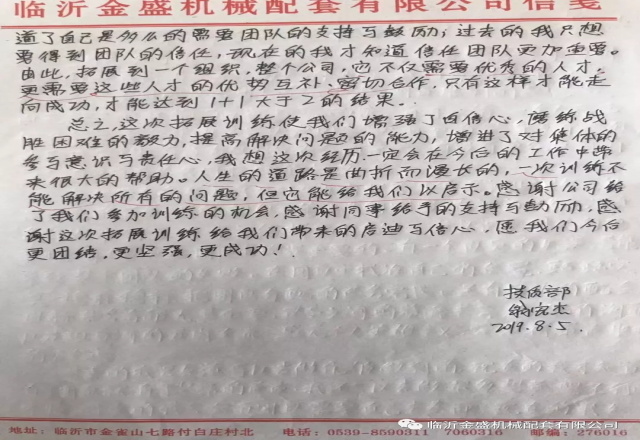 临沂金盛机械配套有限公司信笺
道了自己是多么的需要团队的支持与鼓励;过去的我只想
要得到团队的信任,现在的我才知道信任团队更加重要。
由此,拓展到一个组织,整个公司,它不仅需要优秀的人才,
更需要这些人才的优势互补、密切合作,只有这样才能走
向成功,才能达到1+1大于2的结果。
总之,这次拓展训练使我们增强了自信心,磨练战
胜困难的毅力,提高解决问题的能力,增进了对集体的
参与意识与责任心,我想这次经历一定会在今后的工作中带
来很大的帮助。人生的道路是曲折而漫长的,一次训练不
能解决所有的问题,但它能给我们以启示。感谢公司给
了我们参加训练的机会,感谢同事给予的支持与鼓励,感
谢这次拓展训练给我们带来的启迪与信心,愿我们今后
更团结,更坚强,更成功!
技质部
2019.8.5.
地址:临沂市金雀山七路付白庄村北 电话:0539-8590311 7060316 邮编:276016
临沂金盛机械配套有限公司